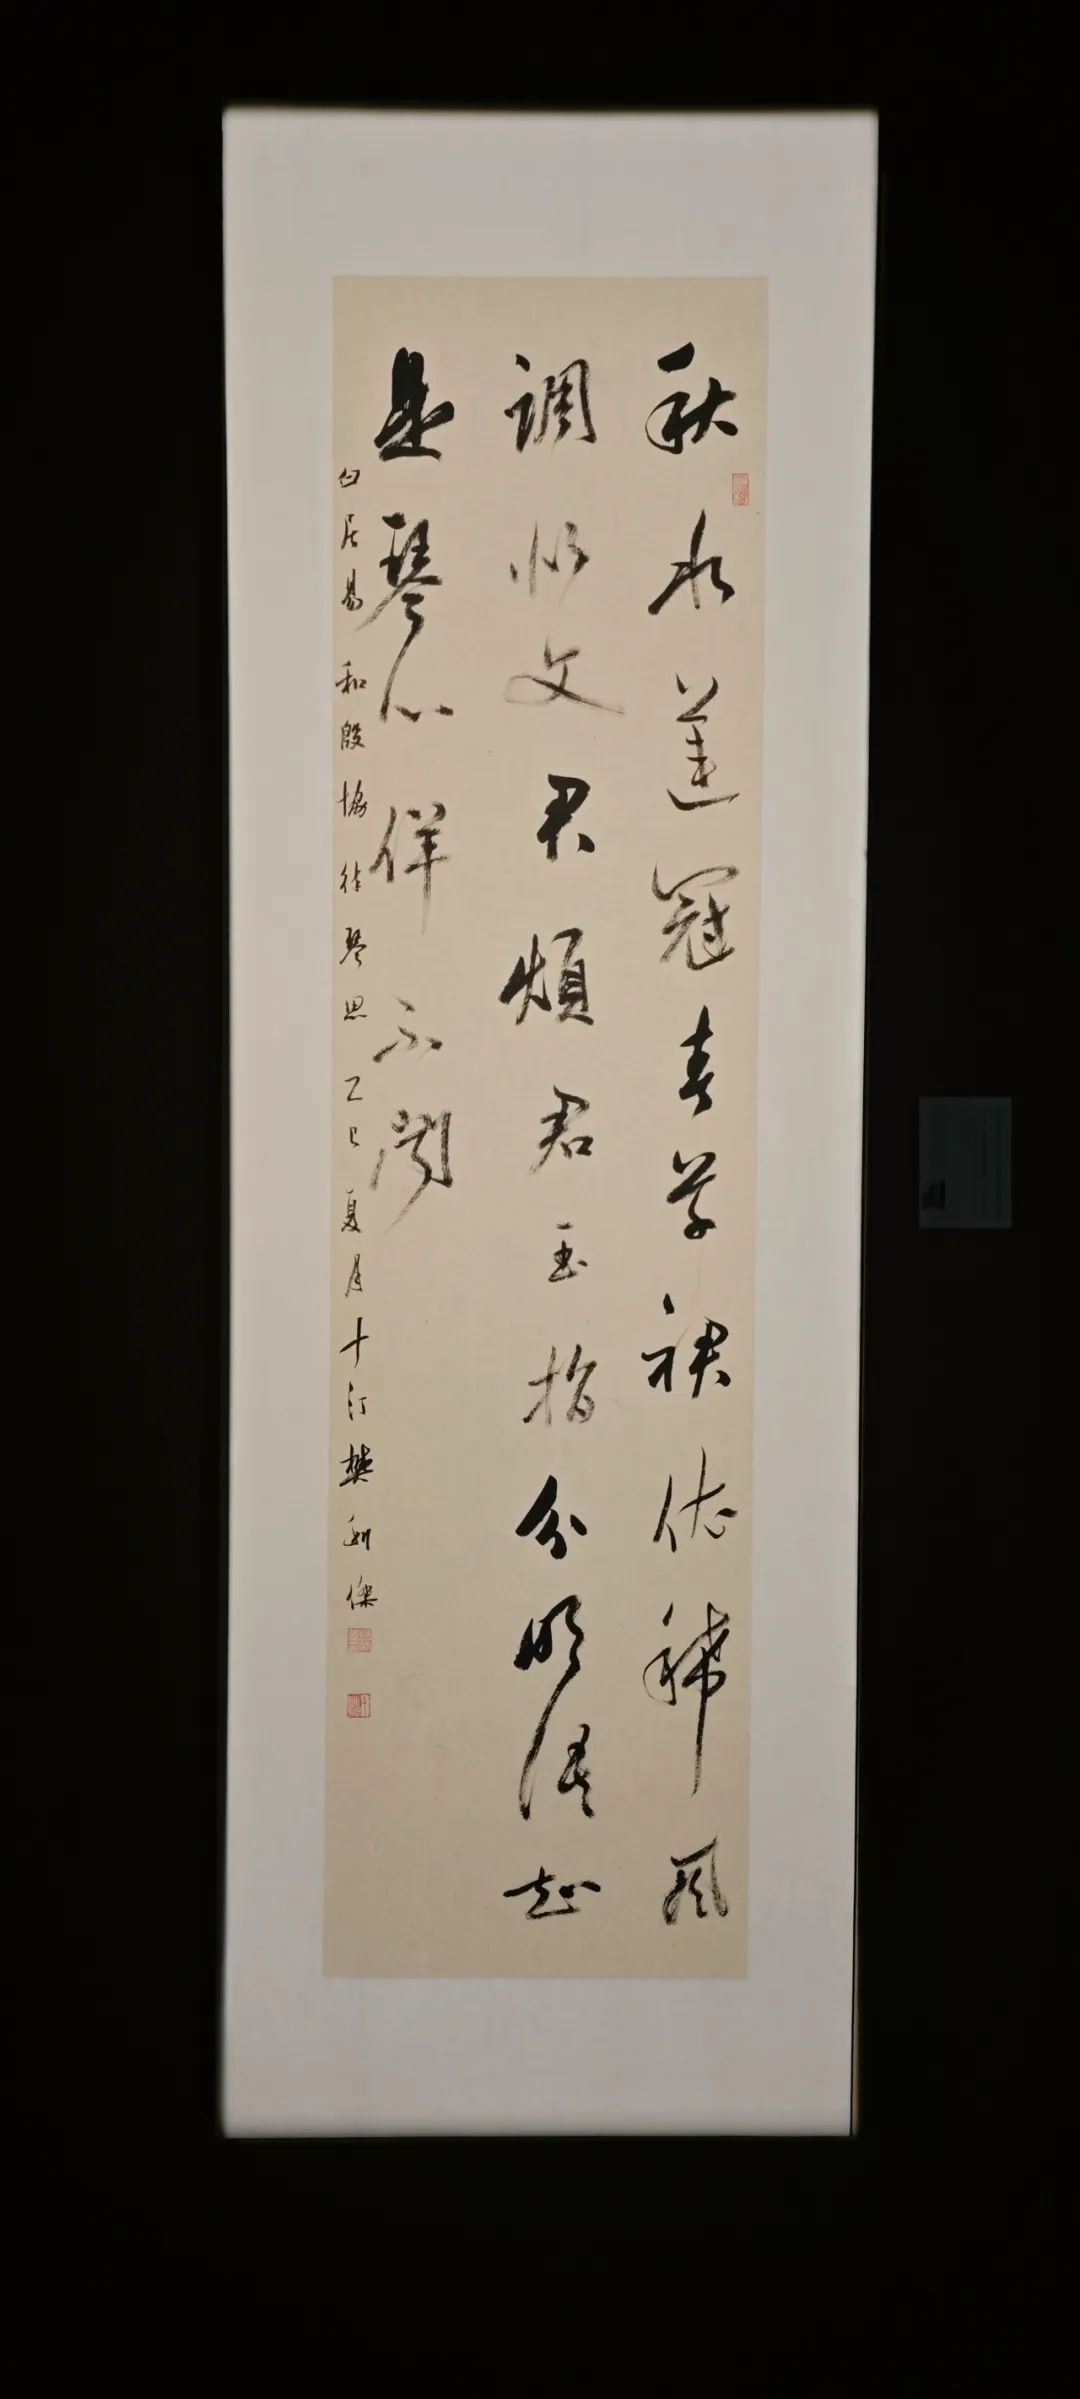 秋水蓮冠春草裙依稀風
調似文君煩君玉指分明語知
是琴心佯不聞
白居易和殷協律琴思乙巳夏月十汀樊利傑